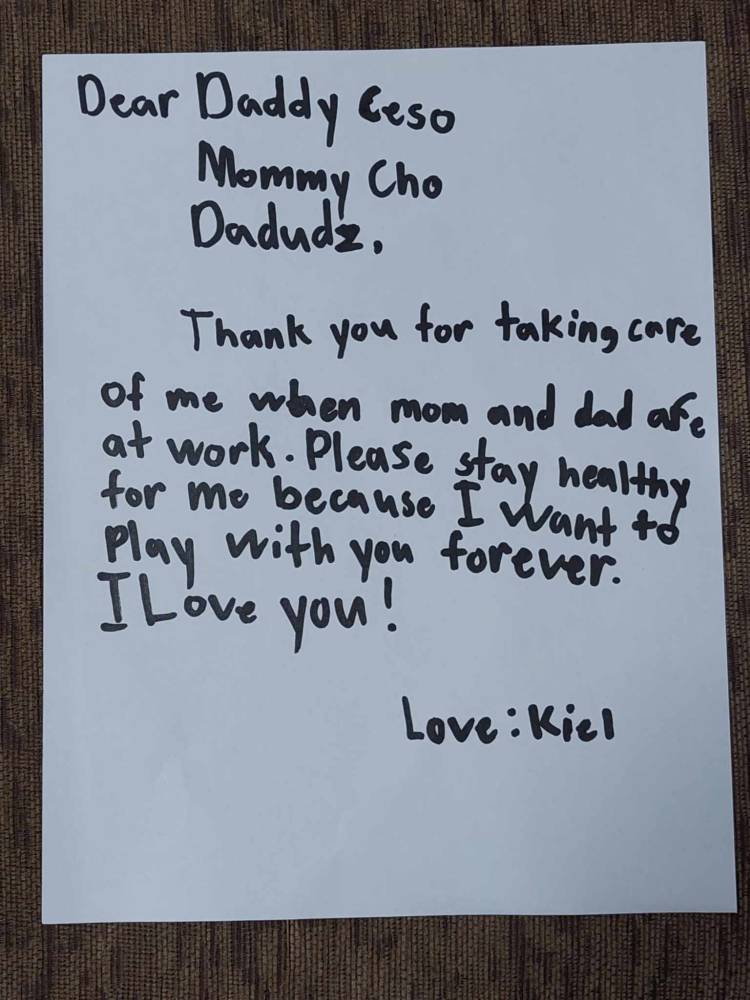 Dear Daddy Ceso
Mommy Cho
Dadudz,
Thank you for taking care
of me when mom and dad are
at work. Please stay healthy
for me because I want to
Play with you forever.
I Love you!
Love: Kiel